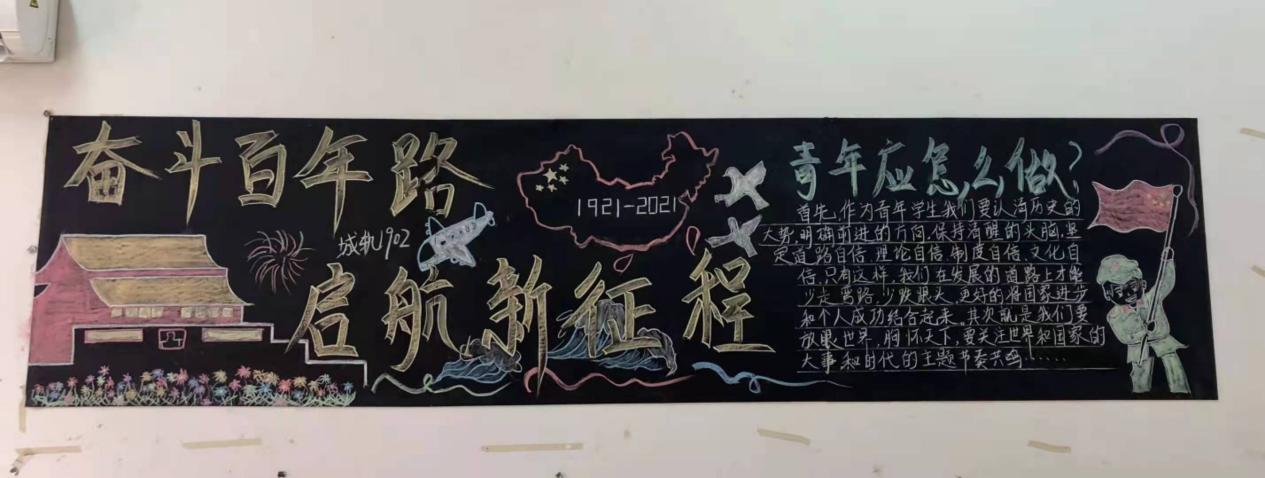 奋斗百年路
城轨1902
启航新征程
1921-2021
青年应怎么做?
首先,作为青年学生我们要认清历史的
大势,明确前进的方向,保持清醒的头脑,坚
定道路自信,理论自信,制度自信,文化自
信,只有这样,我们在发展的道路上才能
少走弯路,少发狠天,更好的将国家进步
和个人成功结合起来。其次就是我们要
放眼世界,胸怀天下,要关注世界和国家的
大事和时代的主题节奏共鸣……